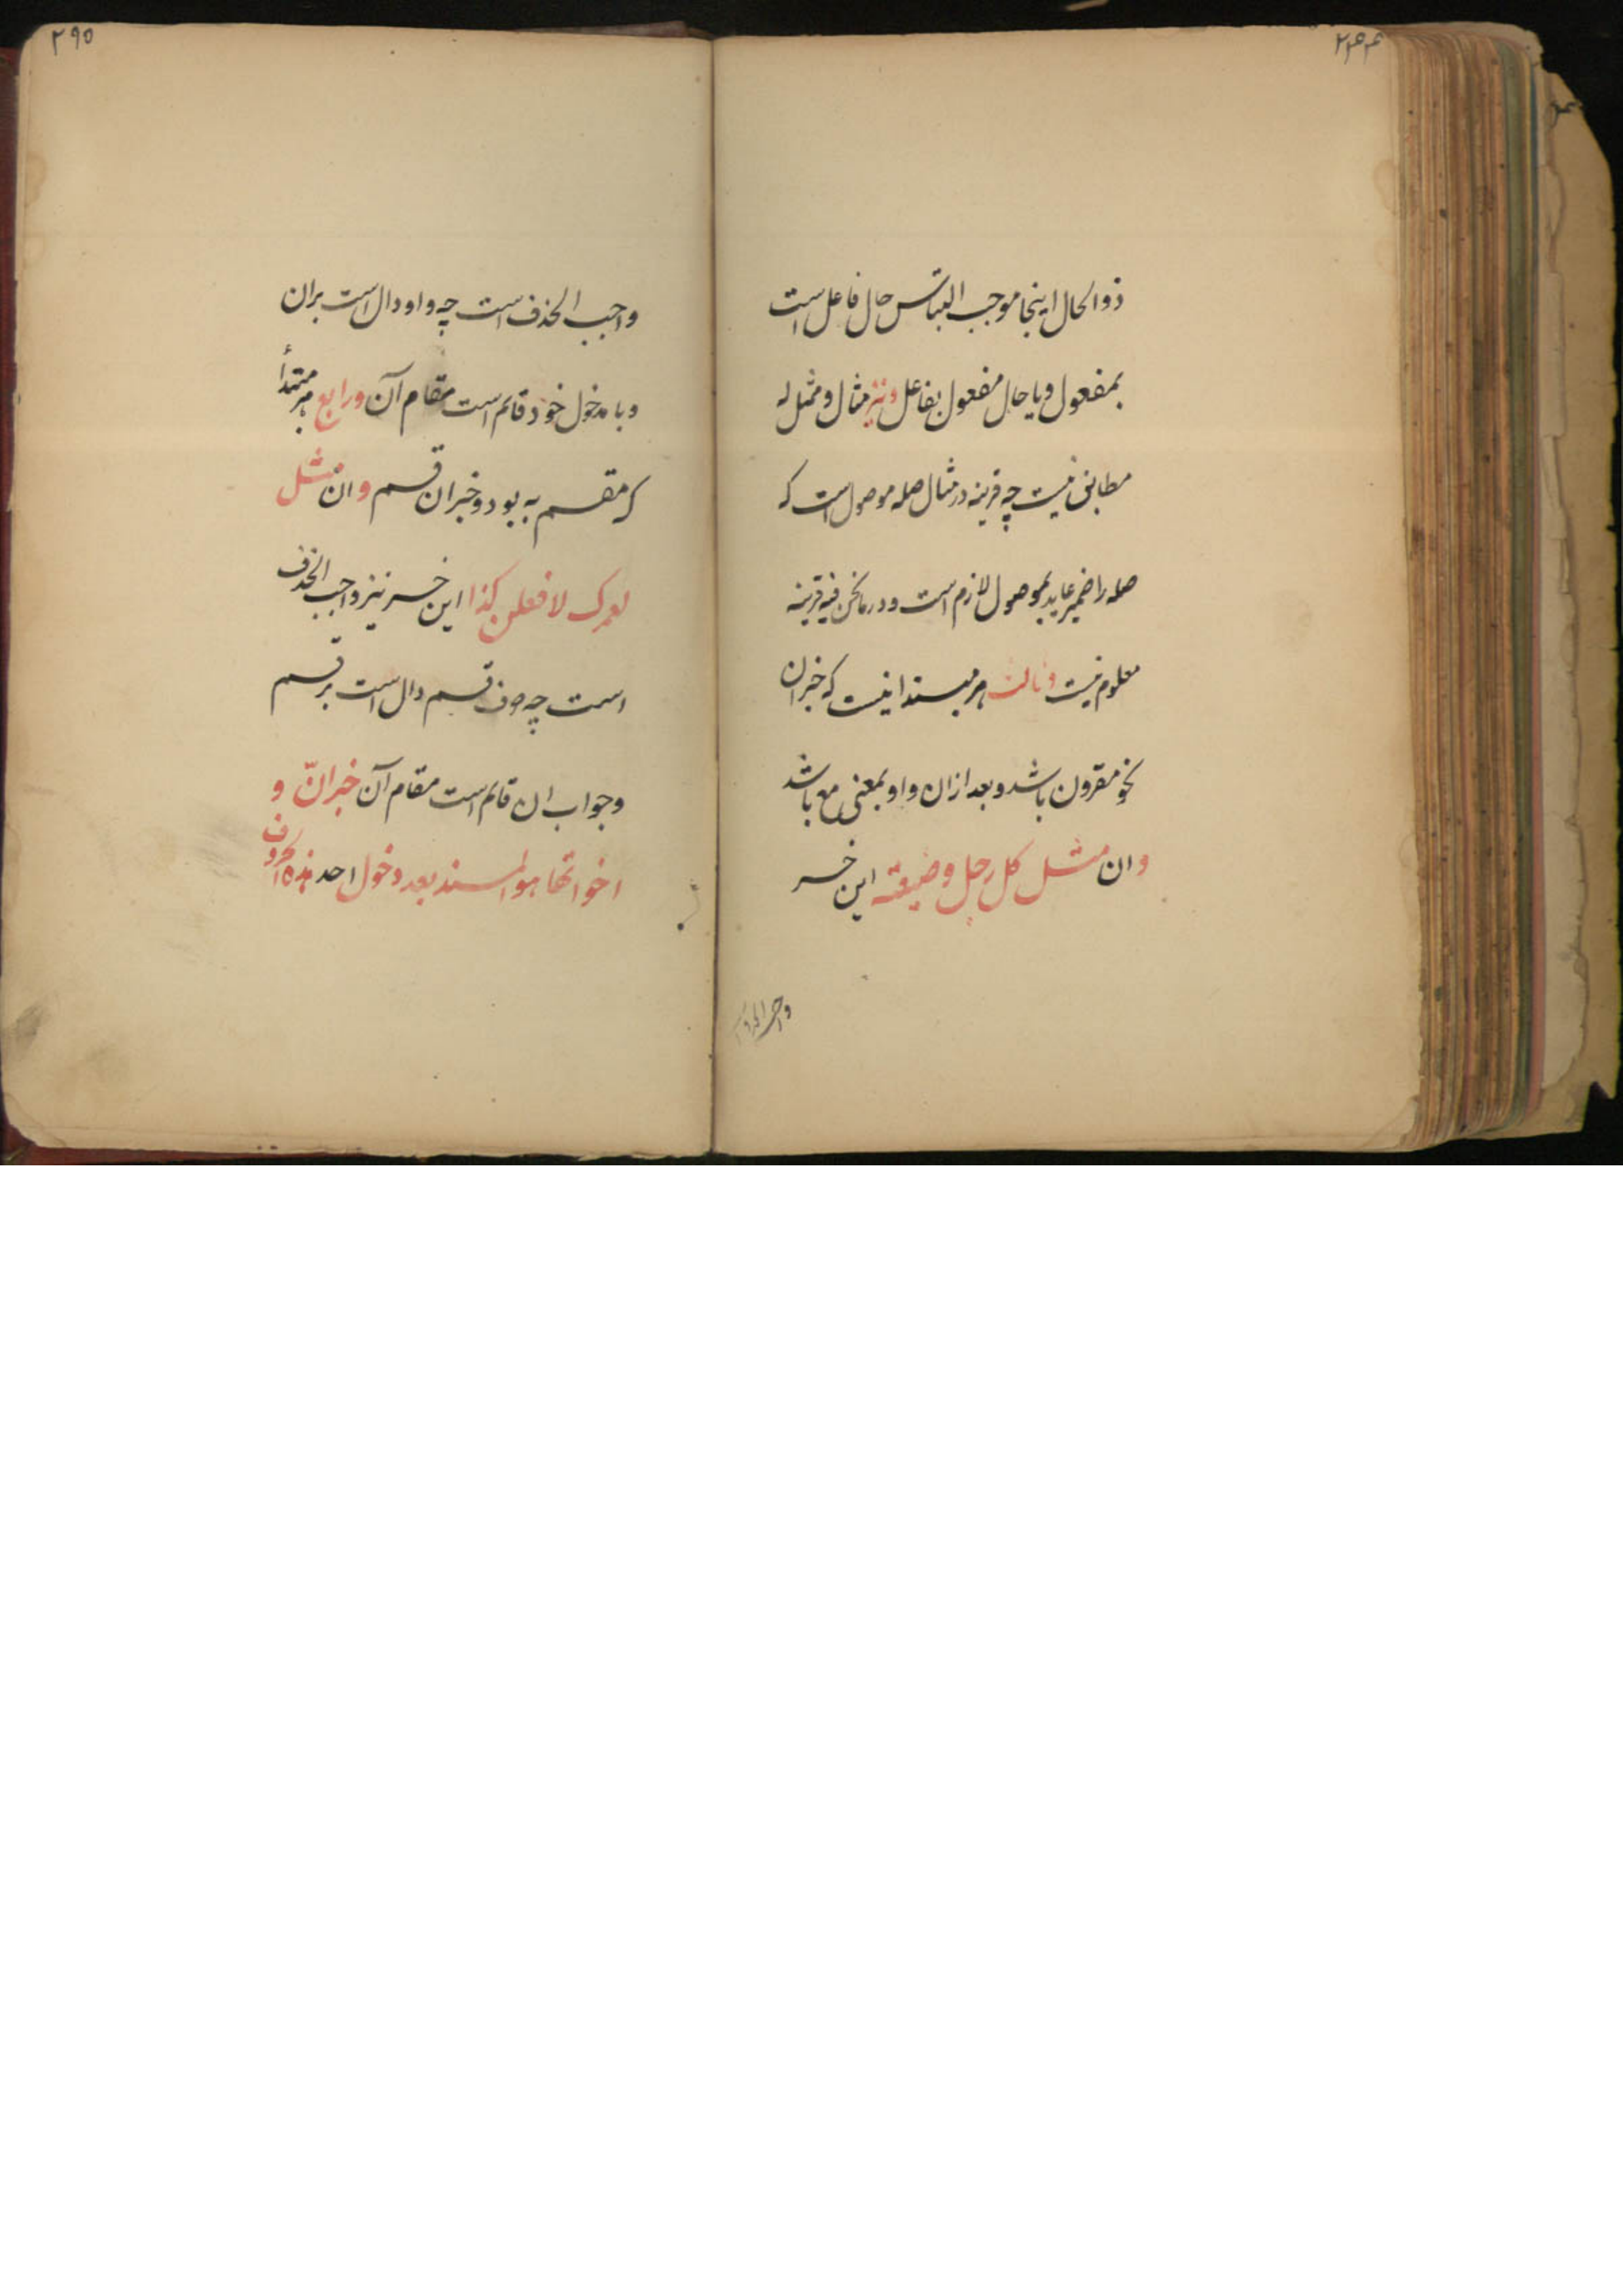 ذوالحال اینجا موجب التباس حال فاعل است
بمفعول و یا حال مفعول بفاعل و نیز مثال و ممثل له
مطابق نیست چه قرینه در مثال صله موصول است که
صله را ضمیر عاید بموصول لازم است و در ما نحن فیه قرینه
معلوم نیست و ثالث هر مبتدائیست که خبر ان
بخو مقرون باشد و بعد ازان واو بمعنی مع باشد
و ان مثل کل رجل وضیعته این خبر
۲۹۵
واجب الحذف است چه واو دال است بران
و با مدخول خود قائم است مقام آن و رابع هر مبتدأ
که مقسم به بود و خبر ان قسم و ان مثل
لعمرک لافعلن کذا این خبر نیز واجب الحذف
است چه حرف قسم دال است بر قسم
و جواب ان قائم است مقام آن خبر انّ و
اخواتها هو المسند بعد دخول احد هذه الحروف